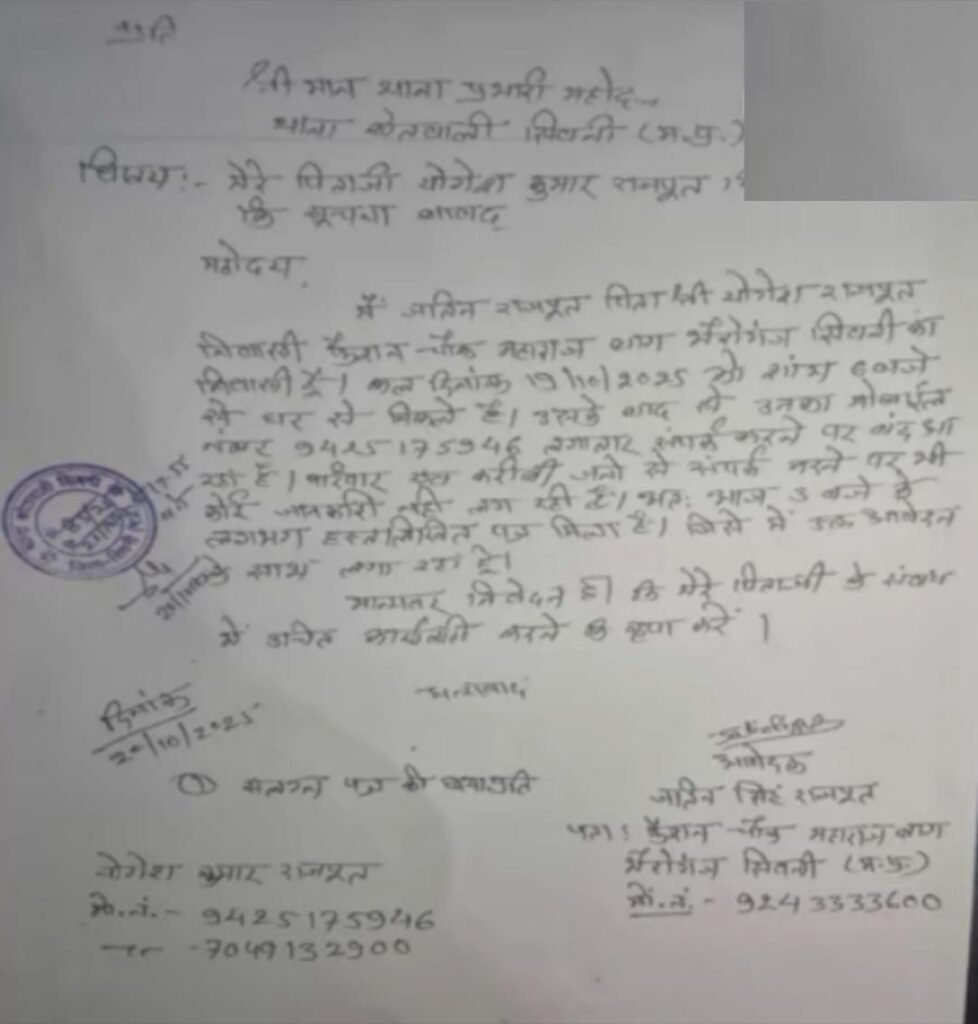 प्रति
श्री मान थाना प्रभारी महोदय
थाना कोतवाली सिवनी (म.प्र.)
विषय:- मेरे पिताजी योगेश कुमार राजपूत
कि सूचना बाबद
महोदय,
में जतिन राजपूत पिता श्री योगेश राजपूत
निवासी चौक महाराज बाग भैरोगंज सिवनी का
निवासी हूँ। कल दिनांक 19/10/2025 को शाम 6 बजे
से घर से निकले है। उसके बाद से उनका मोबाईल
नंबर 9425175946 लगातार संपर्क करने पर बंद आ
रहा है। परिवार एवं करीबी जनो से संपर्क करने पर भी
कोई जानकारी नही लग रही है। अतः आज 3 बजे के
लगभग हस्तलिखित पत्र मिला है। जिसे में उक्त आवेदन
के साथ लगा रहा हूँ।
मान्यवर निवेदन है। कि मेरे पिताजी के संबंध
में उचित कार्यवाही करने की कृपा करें।
धन्यवाद
दिनांक
20/10/2025
आवेदक
① सलग्न पत्र की छायाप्रति
जतिन सिंह राजपूत
पता: चौक महाराज बाग
भैरोगंज सिवनी (म.प्र.)
मो.नं. - 9243333600
योगेश कुमार राजपूत
मो.नं. - 9425175946
7049132900